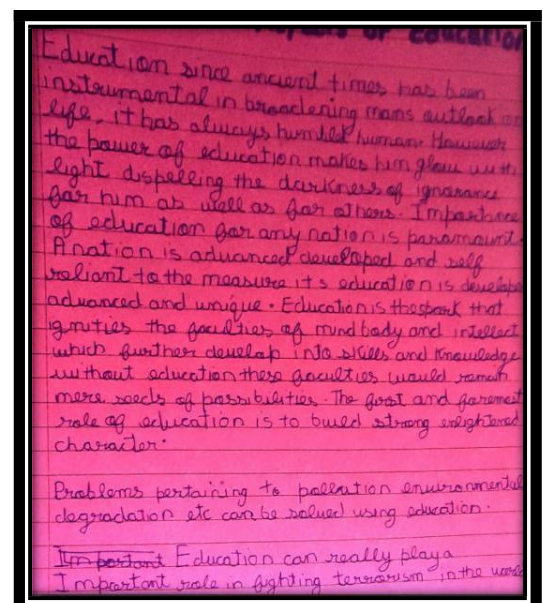 of Education
Education since ancient times has been
instrumental in broadening mans outlook on
life, it has always humbled human. However
the power of education makes him glow with
light dispelling the darkness of ignorance
for him as well as for others. Importance
of education for any nation is paramount.
A nation is advanced developed and self
reliant to the measure its education is develope
advanced and unique. Education is the spark that
ignities the faculties of mind body and intellect
which further develop into skills and knowledge
without education these faculties would remain
mere seeds of possibilities. The first and foremost
role of education is to build strong enlightened
character.
Problems pertaining to pollution environmental
degradation etc can be solved using education.
Important Education can really play a
Important role in fighting terrorism in the world